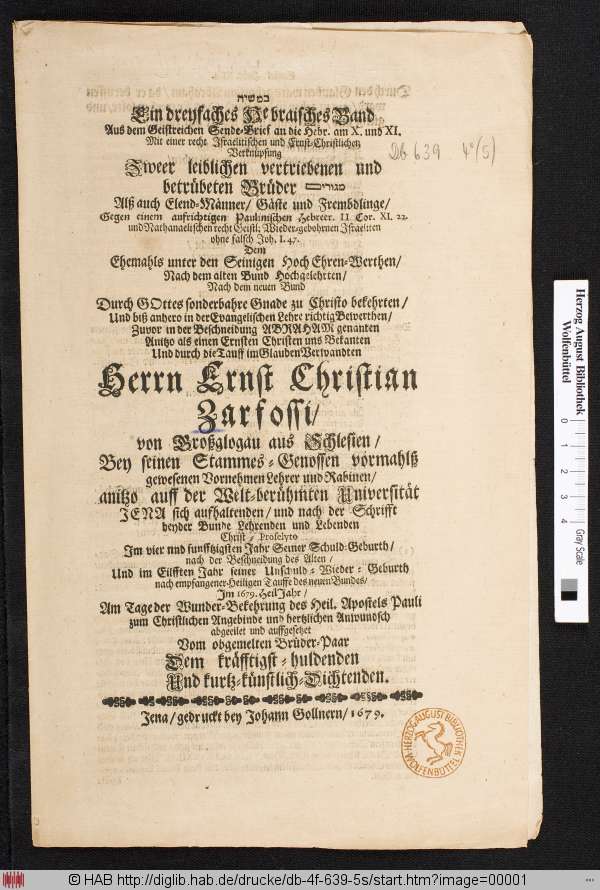 במשיח
Ein dreyfaches Hebraisches Band
Aus dem Geistreichen Sende-Brief an die Hebr. am X. und XI.
Mit einer recht Israelitischen und Ernst-Christlichen
Verknüpfung
Zweer leiblichen vertriebenen und
betrübeten Brüder מגורים
Alß auch Elend-Männer/ Gäste und Frembdlinge/
Gegen einem aufrichtigen Paulinischen Hebreer. II Cor. XI. 22.
und Nathanaelischen recht Geistl: Wieder-gebohrnen Israeliten
ohne falsch Joh. I. 47.
Dem
Ehemahls unter den Seinigen Hoch Ehren-Werthen/
Nach dem alten Bund Hochgelehrten/
Nach dem neuen Bund
Durch GOttes sonderbahre Gnade zu Christo bekehrten/
Und biß anhero in der Evangelischen Lehre richtig Bewerthen/
Zuvor in der Beschneidung ABRAHAM genanten
Anitzo als einen Ernsten Christen uns Bekanten
Und durch die Tauff im Glauben Verwandten
Herrn Ernst Christian
Zarfossi/
von Großglogau aus Schlesien/
Bey seinen Stammes-Genossen vormahlß
gewesenen Vornehmen Lehrer und Rabinen/
anitzo auff der Welt-berühmten Universität
JENA sich aufhaltenden/ und nach der Schrifft
beyder Bunde Lehrenden und Lebenden
Christ-Proselyto
Im vier nnd funfftzigsten Jahr Seiner Schuld-Geburth/
nach der Beschneidung des Alten/
Und im Eilfften Jahr seiner Unschuld-Wieder-Geburth
nach empfangener Heiligen Tauffe des neuen Bundes/
Im 1679. Heil Jahr/
Am Tage der Wunder-Bekehrung des Heil. Apostels Pauli
zum Christlichen Angebinde und hertzlichen Anwundsch
abgeeilet und auffgesetzet
Vom obgemelten Brüder-Paar
Dem kräfftigst-huldenden
Und kurtz-künstlich-Dichtenden.
Jena/ gedruckt bey Johann Gollnern/ 1679.
Db 639 4° (5)
Herzog August Bibliothek
Wolfenbüttel
0 1 2 3 4
Gray Scale
HERZOG-AUGUST BIBLIOTHEK
WOLFENBÜTTEL
© HAB http://diglib.hab.de/drucke/db-4f-639-5s/start.htm?image=00001